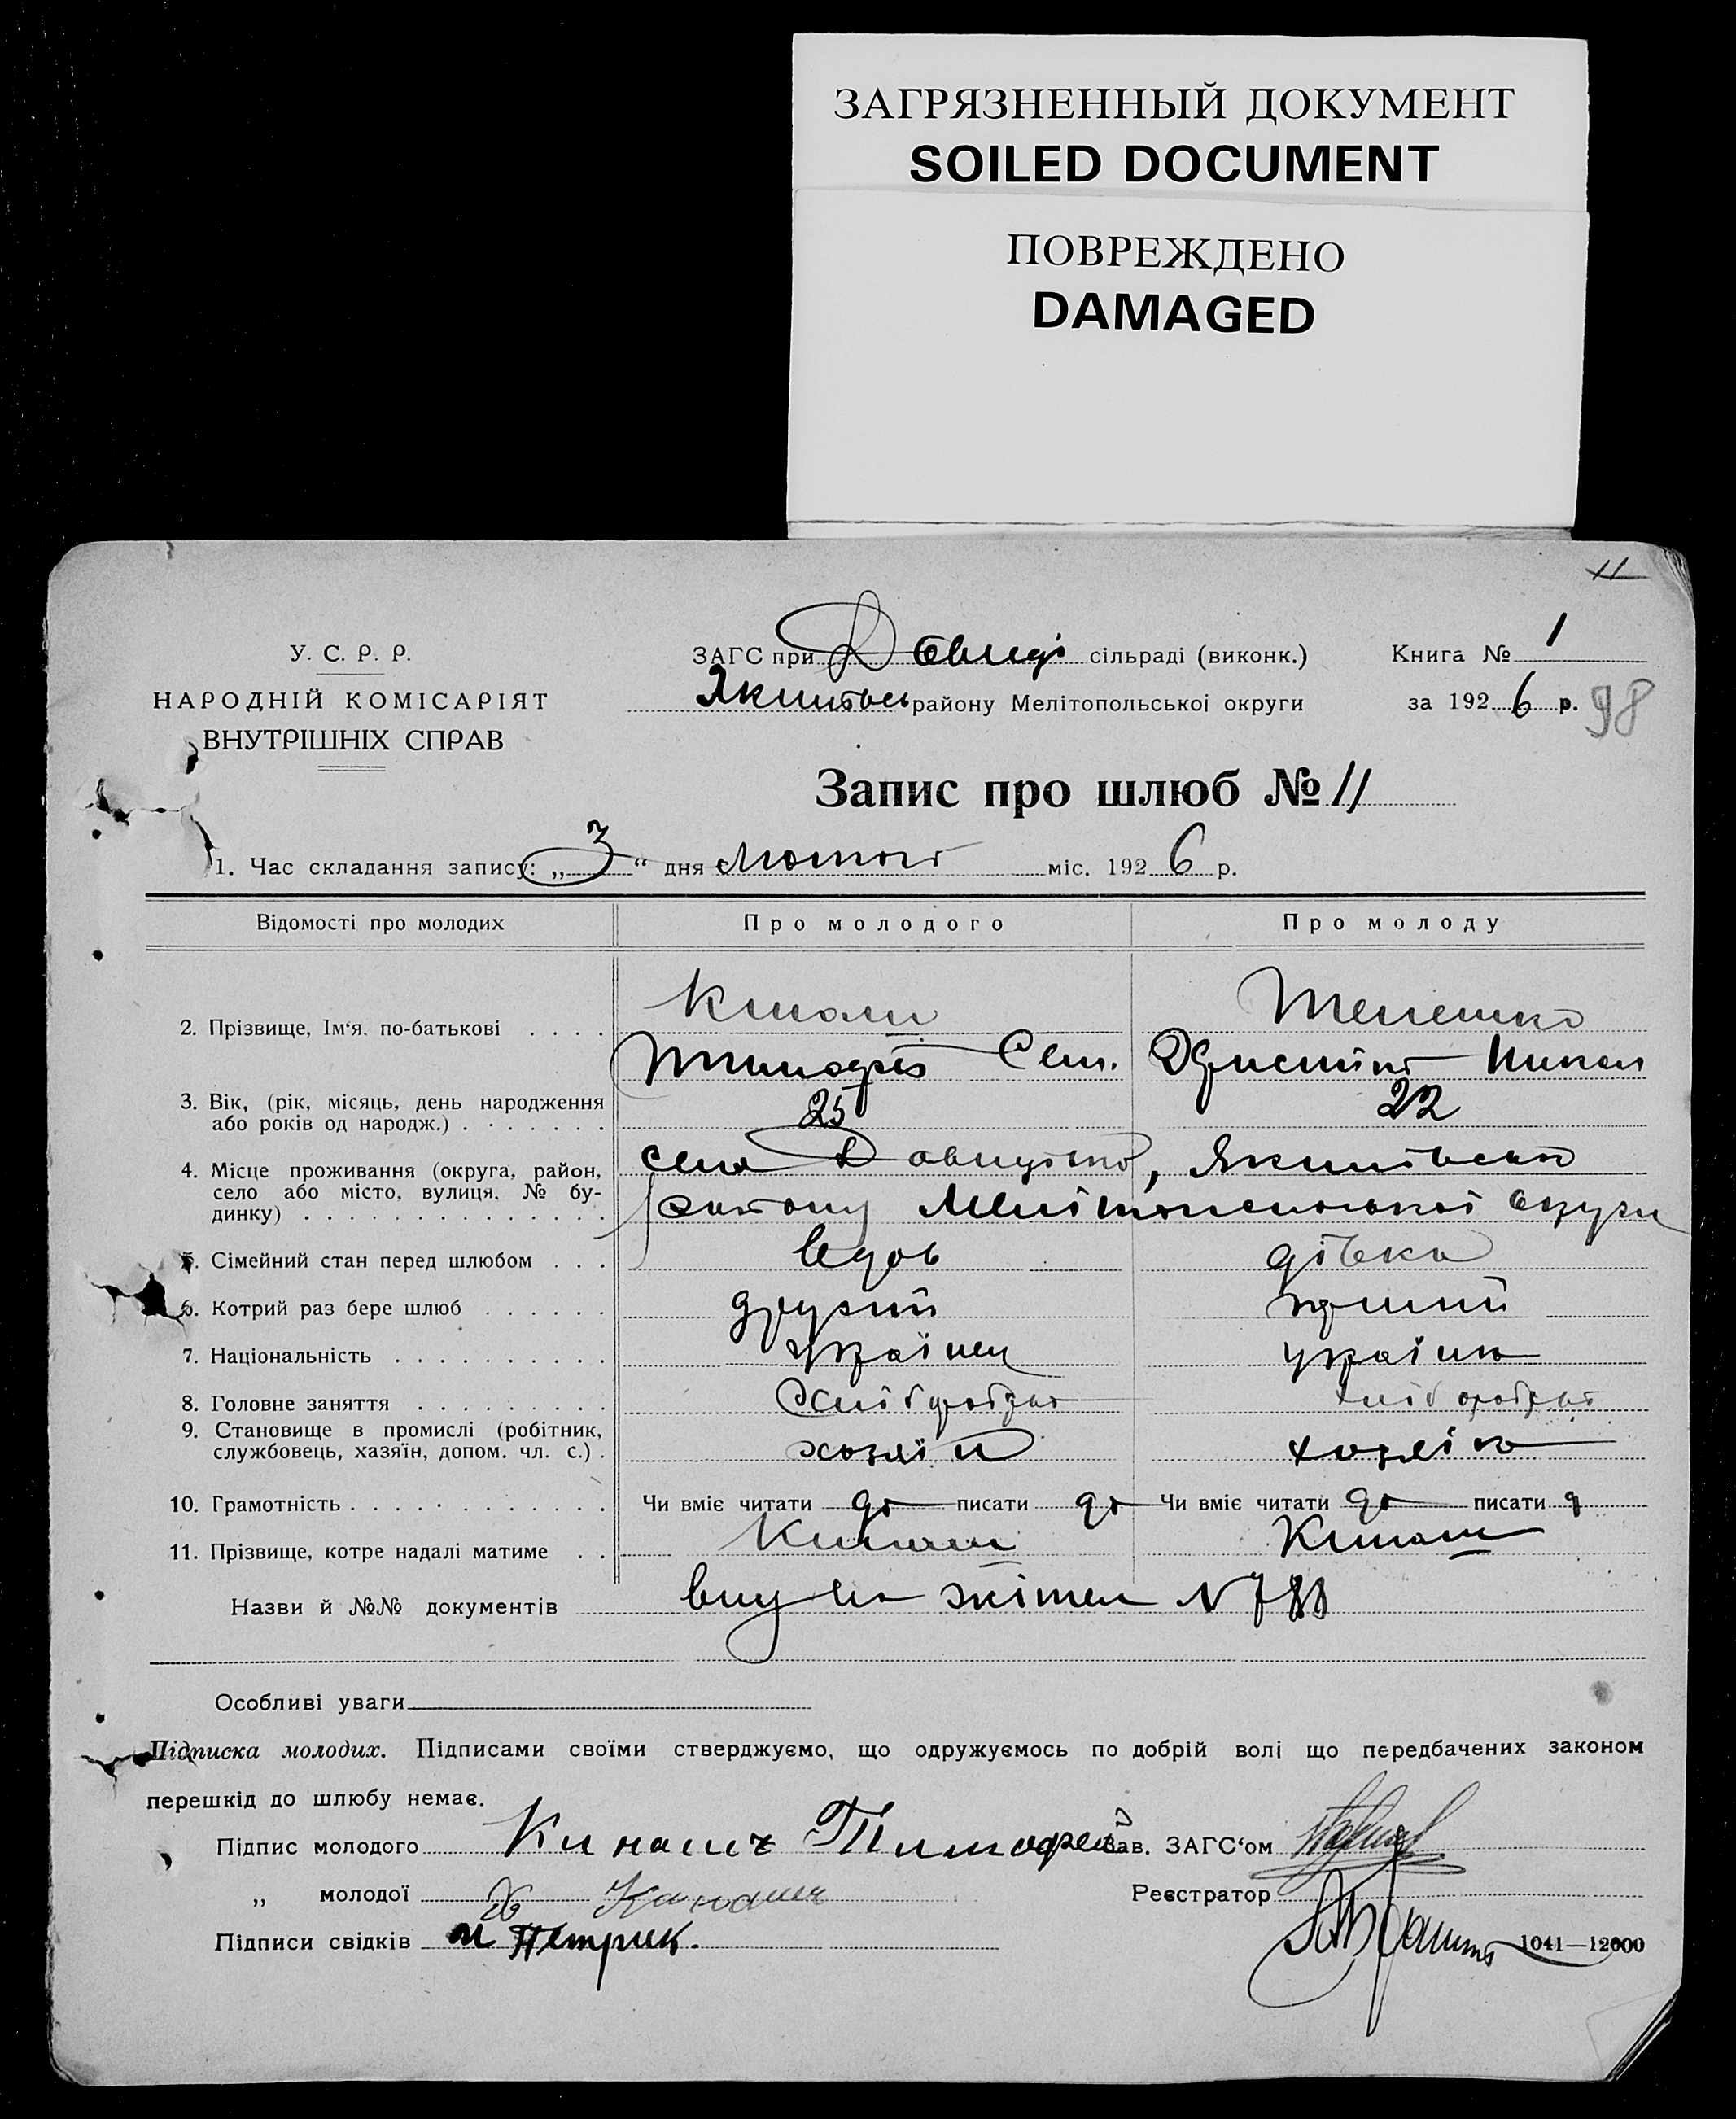 ЗАГРЯЗНЕННЫЙ ДОКУМЕНТ
SOILED DOCUMENT
ПОВРЕЖДЕНО
DAMAGED
11
У. С. Р. Р.
НАРОДНІЙ КОМІСАРІЯТ
ВНУТРІШНІХ СПРАВ
ЗАГС при сільраді (виконк.)
району Мелітопольської округи
Книга № 1
за 1926 р. 98
Запис про шлюб № 11
1. Час складання запису: „3“ дня Лютого міс. 1926 р.
Відомості про молодих Про молодого Про молоду
2. Прізвище, Ім‘я, по-батькові . . . .
Кинаш
Тимофій Сем.
3. Вік, (рік, місяць, день народження
або років од народж.) . . . . . . .
25 22
4. Місце проживання (округа, район,
село або місто, вулиця, № бу-
динку) . . . . . . . . . . . . . .
села Давидівко, Якимівсько
району Мелітопольської округи
5. Сімейний стан перед шлюбом . . . вдов дівка
6. Котрий раз бере шлюб . . . . . . другий перший
7. Національність . . . . . . . . . . українец україн
8. Головне заняття . . . . . . . . . хлібороб
9. Становище в промислі (робітник,
службовець, хазяїн, допом. чл. с.) . хозяїн
10. Грамотність . . . . . . . . . . . . Чи вміє читати да писати да Чи вміє читати да писати д
11. Прізвище, котре надалі матиме . . Кинаш Кинаш
Назви й №№ документів вид на жітел N 788
Особливі уваги
Підписка молодих. Підписами своїми стверджуємо, що одружуємось по добрій волі що передбачених законом
перешкід до шлюбу немає.
Підпис молодого Кинашъ Тимофей Зав. ЗАГС‘ом
„ молодої Х Кинашъ Реєстратор
Підписи свідків М Петрик. 1041—12000